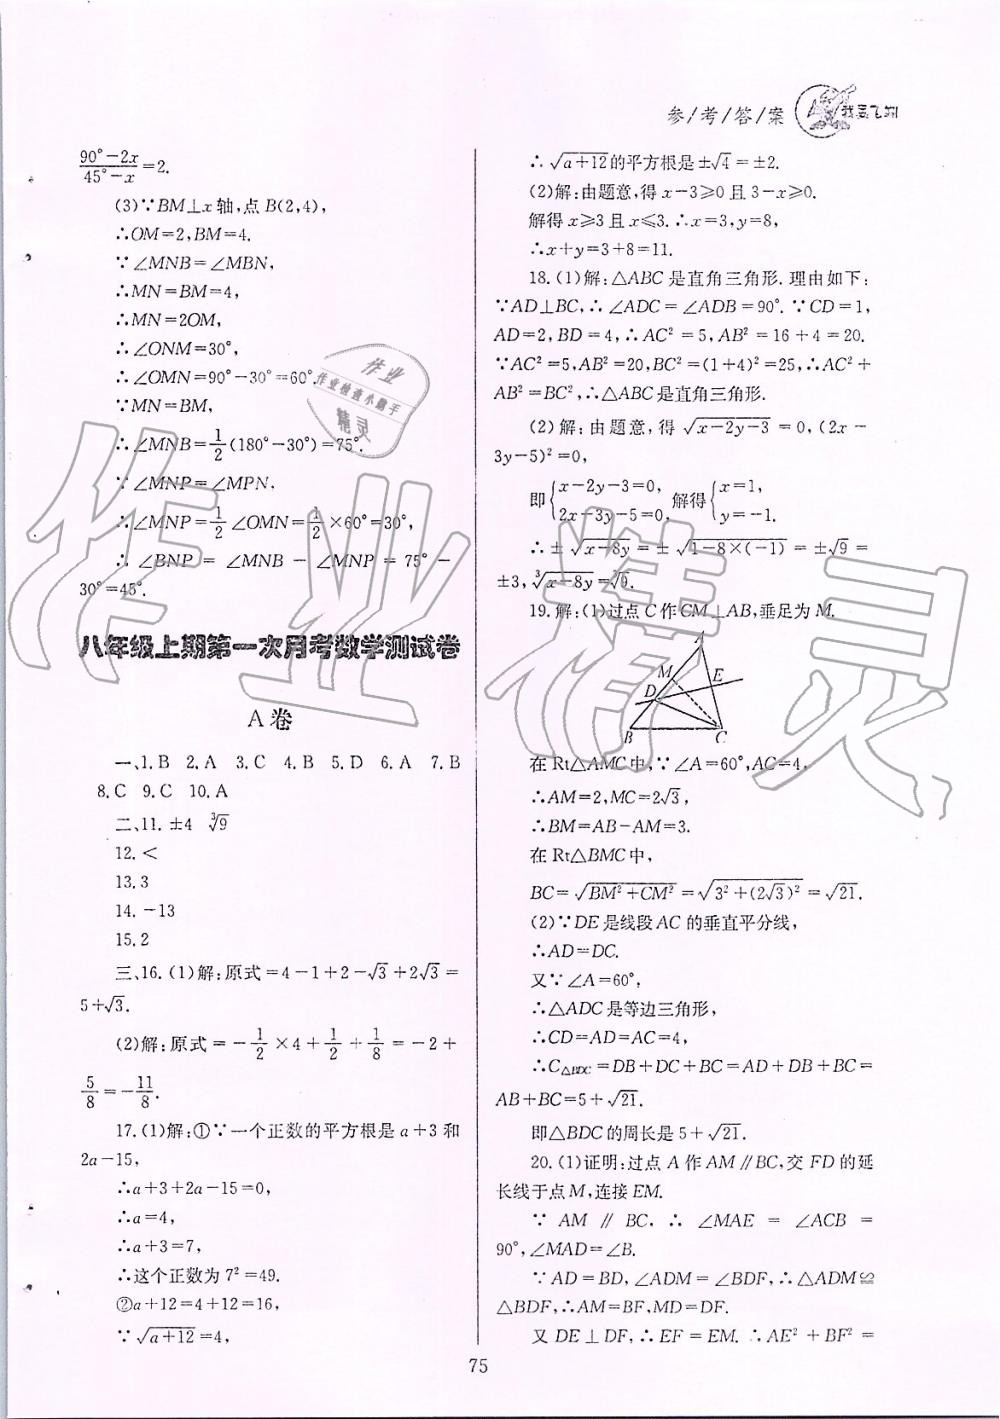 参/考/答/案
我要飞翔
(90°-2x)/(45°-x)=2.
(3)∵BM⊥x轴,点B(2,4),
∴OM=2,BM=4.
∵∠MNB=∠MBN,
∴MN=BM=4,
∴MN=2OM,
∴∠ONM=30°,
∴∠OMN=90°-30°=60°.
∵MN=BM,
∴∠MNB=1/2(180°-30°)=75°.
∵∠MNP=∠MPN.
∴∠MNP=1/2∠OMN=1/2×60°=30°,
∴∠BNP=∠MNB-∠MNP=75°-
30°=45°.
八年级上期第一次月考数学测试卷
A卷
一、1.B 2.A 3.C 4.B 5.D 6.A 7.B
8.C 9.C 10.A
二、11.±4 ∛9
12.<
13.3
14.-13
15.2
三、16.(1)解:原式=4-1+2-√3+2√3=
5+√3.
(2)解:原式=-1/2×4+1/2+1/8=-2+
5/8=-11/8.
17.(1)解:①∵一个正数的平方根是a+3和
2a-15,
∴a+3+2a-15=0,
∴a=4,
∴a+3=7,
∴这个正数为7²=49.
②a+12=4+12=16,
∵√(a+12)=4,
∴√(a+12)的平方根是±√4=±2.
(2)解:由题意,得x-3≥0且3-x≥0.
解得x≥3且x≤3.∴x=3,y=8,
∴x+y=3+8=11.
18.(1)解:△ABC是直角三角形.理由如下:
∵AD⊥BC,∴∠ADC=∠ADB=90°.∵CD=1,
AD=2,BD=4,∴AC²=5,AB²=16+4=20.
∵AC²=5,AB²=20,BC²=(1+4)²=25,∴AC²+
AB²=BC²,∴△ABC是直角三角形.
(2)解:由题意,得√(x-2y-3)=0,(2x-
3y-5)²=0,
即{x-2y-3=0, 2x-3y-5=0, 解得{x=1, y=-1.
∴±√(x-8y)=±√(1-8×(-1))=±√9=
±3,∛(x-8y)=∛9.
19.解:(1)过点C作CM⊥AB,垂足为M.
A
M E
D
B C
在Rt△AMC中,∵∠A=60°,AC=4,
∴AM=2,MC=2√3,
∴BM=AB-AM=3.
在Rt△BMC中,
BC=√(BM²+CM²)=√(3²+(2√3)²)=√21.
(2)∵DE是线段AC的垂直平分线,
∴AD=DC.
又∵∠A=60°,
∴△ADC是等边三角形,
∴CD=AD=AC=4,
∴C△BDC=DB+DC+BC=AD+DB+BC=
AB+BC=5+√21.
即△BDC的周长是5+√21.
20.(1)证明:过点A作AM∥BC,交FD的延
长线于点M,连接EM.
∵AM∥BC,∴∠MAE=∠ACB=
90°,∠MAD=∠B.
∵AD=BD,∠ADM=∠BDF,∴△ADM≌
△BDF,∴AM=BF,MD=DF.
又DE⊥DF,∴EF=EM.∴AE²+BF²=
75
作业
作业检查小助手
精灵
作业精灵